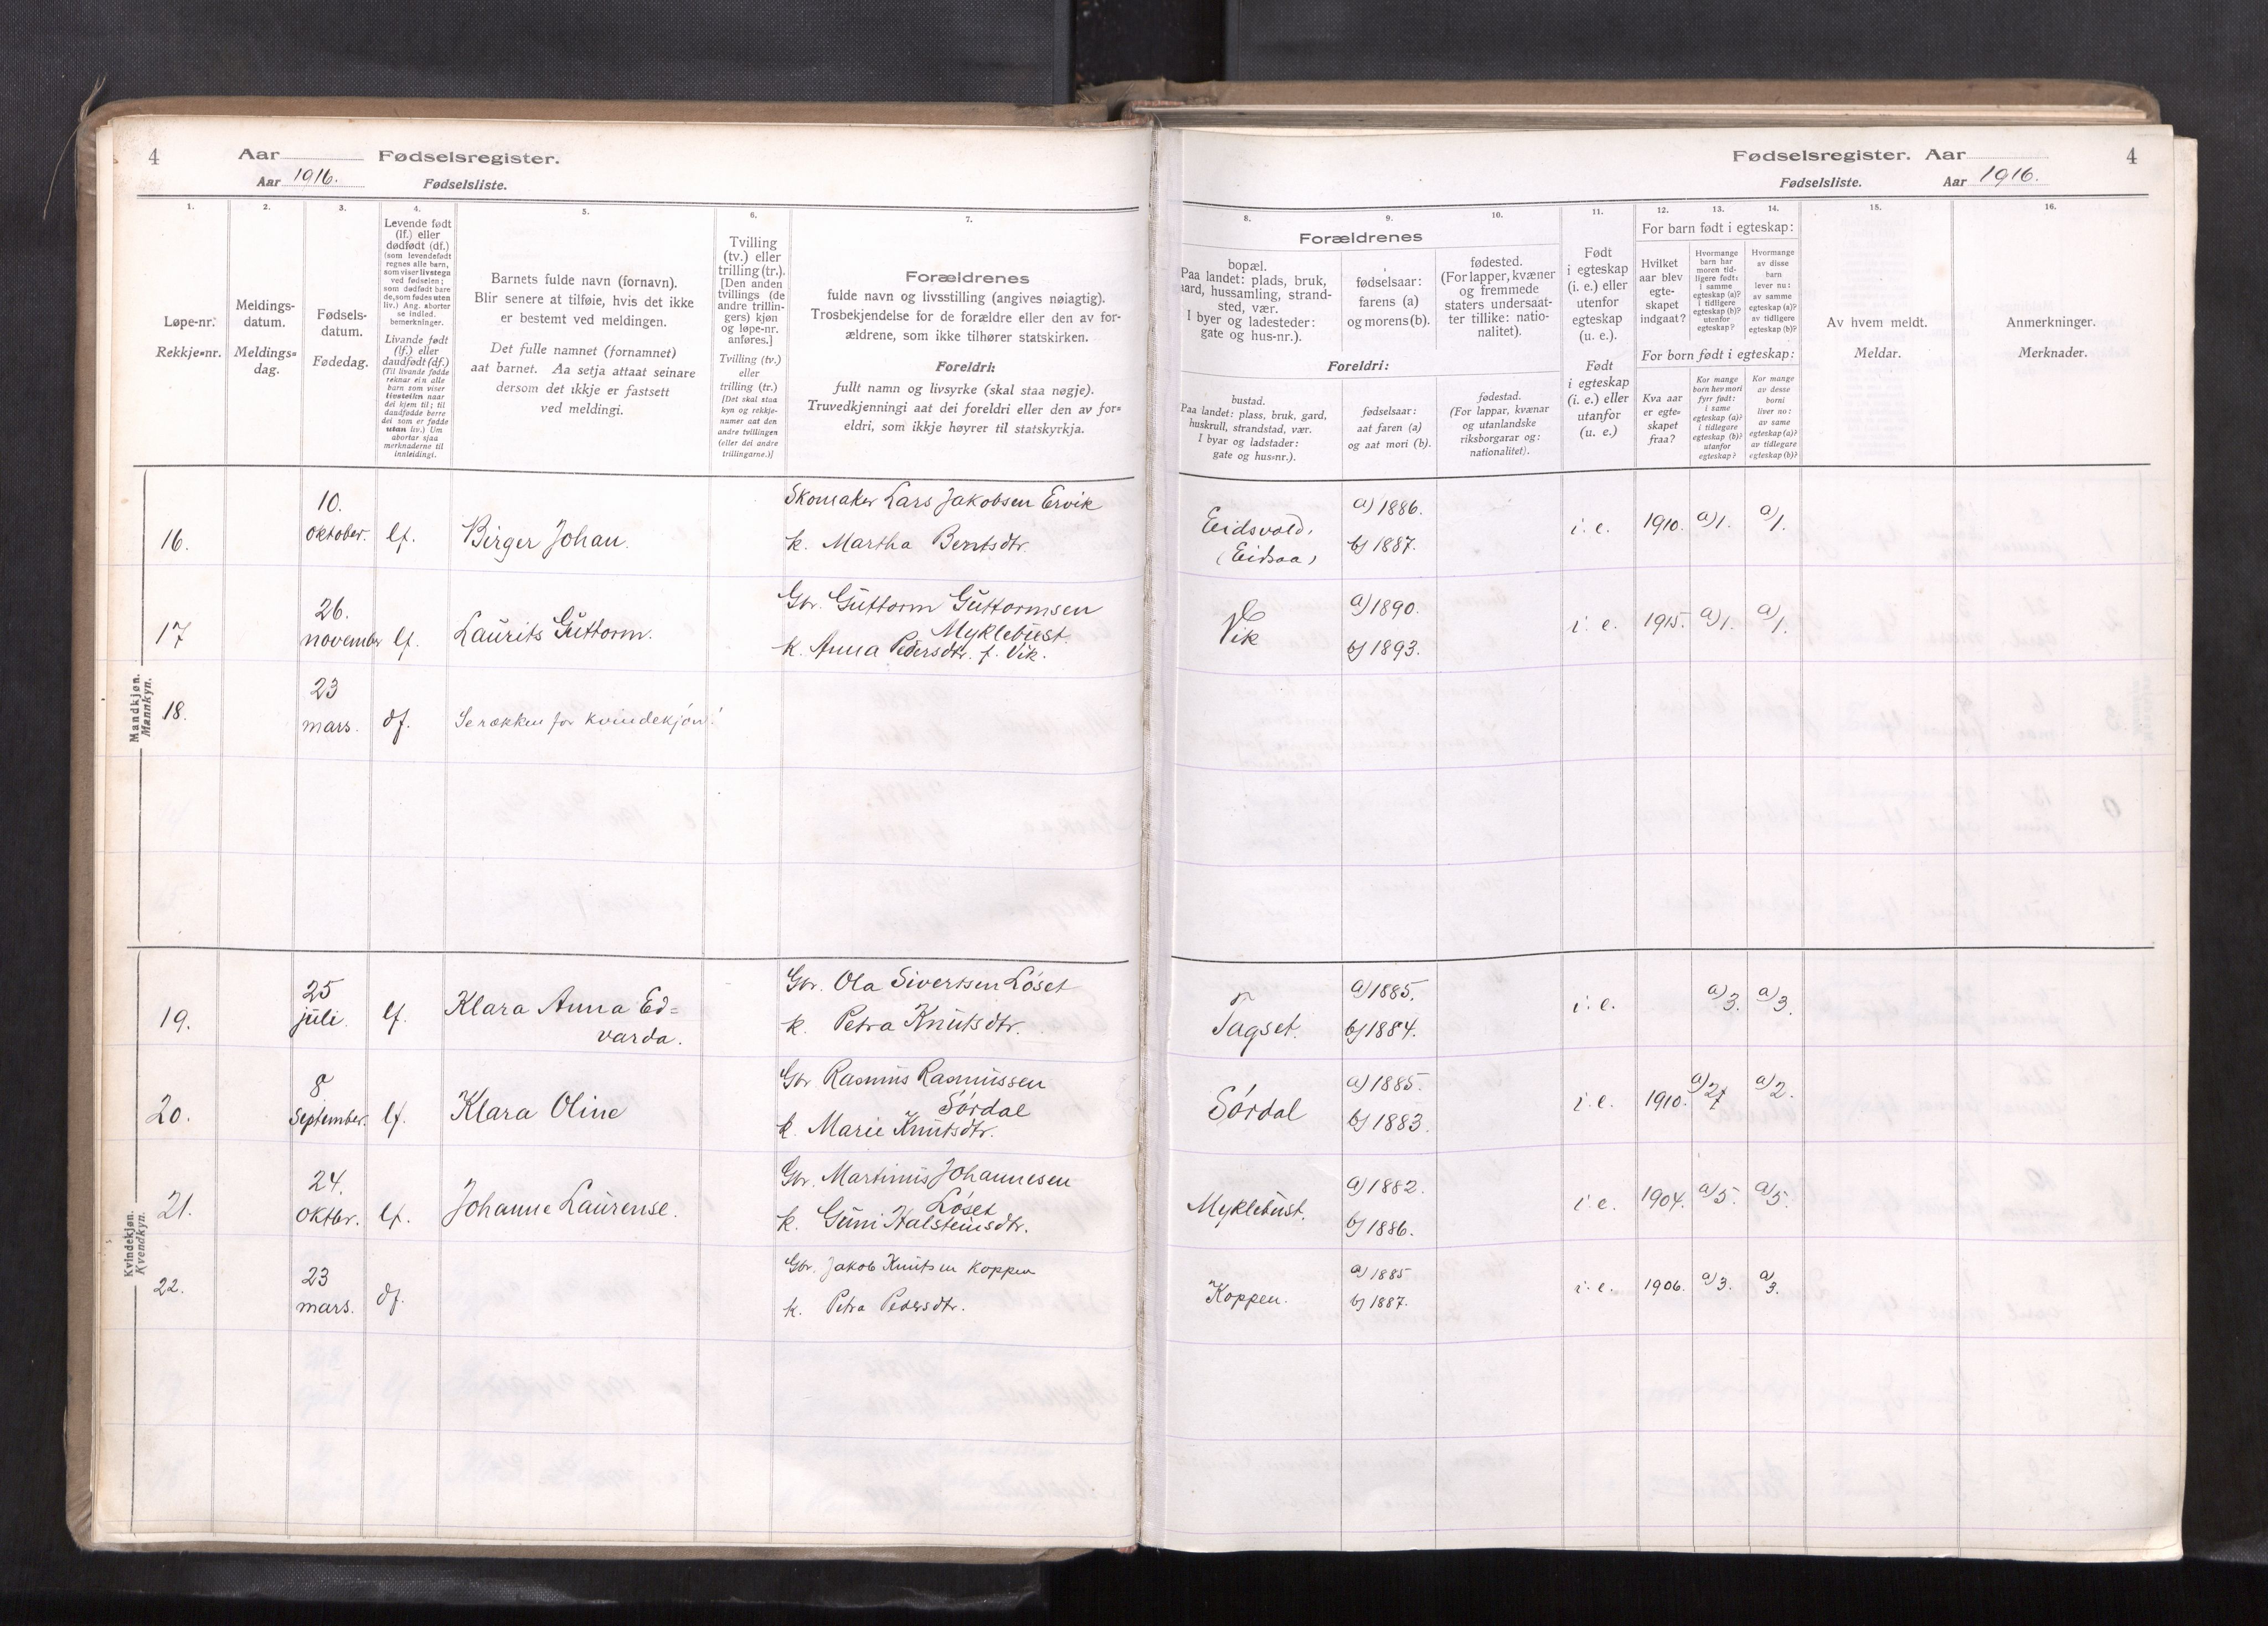 4
Aar Fødselsregister.
Aar 1916. Fødselsliste.
1.
2.
3.
4.
5.
6.
7.
Løpe-nr.
Rekkje-nr.
Meldings-
datum.
Meldings-
dag.
Fødsels-
datum.
Fødedag.
Levende født
(lf.) eller
dødfødt (df.)
(som levendefødt
regnes alle barn,
som viser livstegn
ved fødselen;
som dødfødt bare
de, som fødes uten
liv.) Ang. aborter
se indled.
bemerkninger.
Livande født
(lf.) eller
daudfødt (df.)
(Til livande fødde
reknar ein alle
barn som viser
livsteikn naar
dei kjem til; til
daudfødde berre
dei som er fødde
utan liv.) Um
abortar sjaa
merknaderne til
innleidingi.
Barnets fulde navn (fornavn).
Blir senere at tilføie, hvis det ikke
er bestemt ved meldingen.
Det fulle namnet (fornamnet)
aat barnet. Aa setja attaat seinare
dersom det ikkje er fastsett
ved meldingi.
Tvilling
(tv.) eller
trilling (tr.).
[Den anden
tvillings (de
andre trillin-
gers) kjøn
og løpe-nr.
anføres.]
Tvilling (tv.)
eller
trilling (tr.)
[Det skal staa
kyn og rekkje-
numer aat den
andre tvillingen
(eller dei andre
trillingarne.)]
Forældrenes
fulde navn og livsstilling (angives nøiagtig).
Trosbekjendelse for de forældre eller den av for-
ældrene, som ikke tilhører statskirken.
Foreldri:
fullt namn og livsyrke (skal staa nøgje).
Truvedkjenningi aat dei foreldri eller den av for-
eldri, som ikkje høyrer til statskyrkja.
Mandkjøn.
Mannkyn.
16.
10.
oktober.
lf.
Birger Johan.
Skomaker Lars Jakobsen Ervik
k. Martha Bentsdtr.
17
26.
november
lf.
Laurits Guttorm.
Gbr. Guttorm Guttormsen
Myklebust.
k. Anna Pedersdtr. f. Vik.
18.
23
mars.
df.
Se rækken for kvindekjøn!
Kvindekjøn.
Kvendkyn.
19.
25
juli.
lf.
Klara Anna Ed=
varda.
Gbr. Ola Sivertsen Løset
k. Petra Knutsdtr.
20.
8
September.
lf.
Klara Oline
Gbr Rasmus Rasmussen
Sørdal
k. Marie Knutsdtr.
21.
24.
oktbr.
lf.
Johanne Laurense.
Gbr. Martinus Johannesen
Løset
k. Guni Halsteinsdtr.
22.
23
mars.
df.
Gbr. Jakob Knutsen Koppen
k. Petra Pedersdtr.
Fødselsregister. Aar
4
Fødselsliste. Aar 1916.
8.
9.
10.
11.
12.
13.
14.
15.
16.
Forældrenes
bopæl.
Paa landet: plads, bruk,
gaard, hussamling, strand-
sted, vær.
I byer og ladesteder:
gate og hus-nr.).
fødselsaar:
farens (a)
og morens (b).
fødested.
(For lapper, kvæner
og fremmede
staters undersaat-
ter tillike: natio-
nalitet).
Foreldri:
bustad.
Paa landet: plass, bruk, gard,
huskrull, strandstad, vær.
I byar og ladstader:
gate og hus-nr.).
fødselsaar:
aat faren (a)
og aat mori (b).
fødestad.
(For lappar, kvænar
og utanlandske
riksborgarar og:
nationalitet).
Født
i egteskap
(i. e.) eller
utenfor
egteskap
(u. e.).
Født
i egteskap
(i. e.) eller
utanfor
(u. e.)
For barn født i egteskap:
Hvilket
aar blev
egte-
skapet
indgaat?
Hvormange
barn har
moren tid-
ligere født:
i samme
egteskap (a)?
i tidligere
egteskap (b)?
utenfor
egteskap?
Hvormange
av disse
barn
lever nu:
av samme
egteskap (a)?
av tidligere
egteskap (b)?
For born født i egteskap:
Kva aar
er egte-
skapet
fraa?
Kor mange
born hev mori
fyrr født:
i same
egteskap (a)?
i tidlegare
egteskap (b)?
utanfor
egteskap?
Kor mange
av desse
borni
liver no:
av same
egteskap (a)?
av tidlegare
egteskap (b)?
Av hvem meldt.
Meldar.
Anmerkninger.
Merknader.
Eidsvold,
(Eidsaa)
a) 1886.
b) 1887.
i. e.
1910.
a) 1.
a) 1.
Vik
a) 1890.
b) 1893.
i. e.
1915.
a) 1.
a) 1.
Tagset.
a) 1885.
b) 1884.
i. e.
a) 3.
a) 3.
Sørdal
a) 1885.
b) 1883.
i. e.
1910.
a) 2
a) 2.
Myklebust.
a) 1882.
b) 1886.
i. e.
1904.
a) 5.
a) 5.
Koppen.
a) 1885
b) 1887.
i. e.
1906.
a) 3.
a) 3.